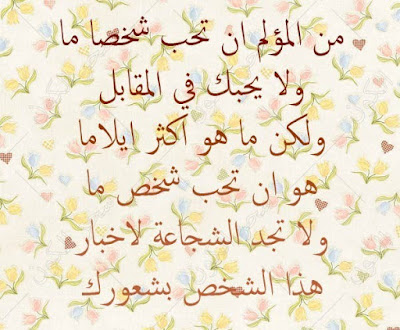 من المؤلم ان تحب شخصا ما
ولا يحبك في المقابل
ولكن ما هو اكثر ايلاما
هو ان تحب شخص ما
ولا تجد الشجاعة لاخبار
هذا الشخص بشعورك